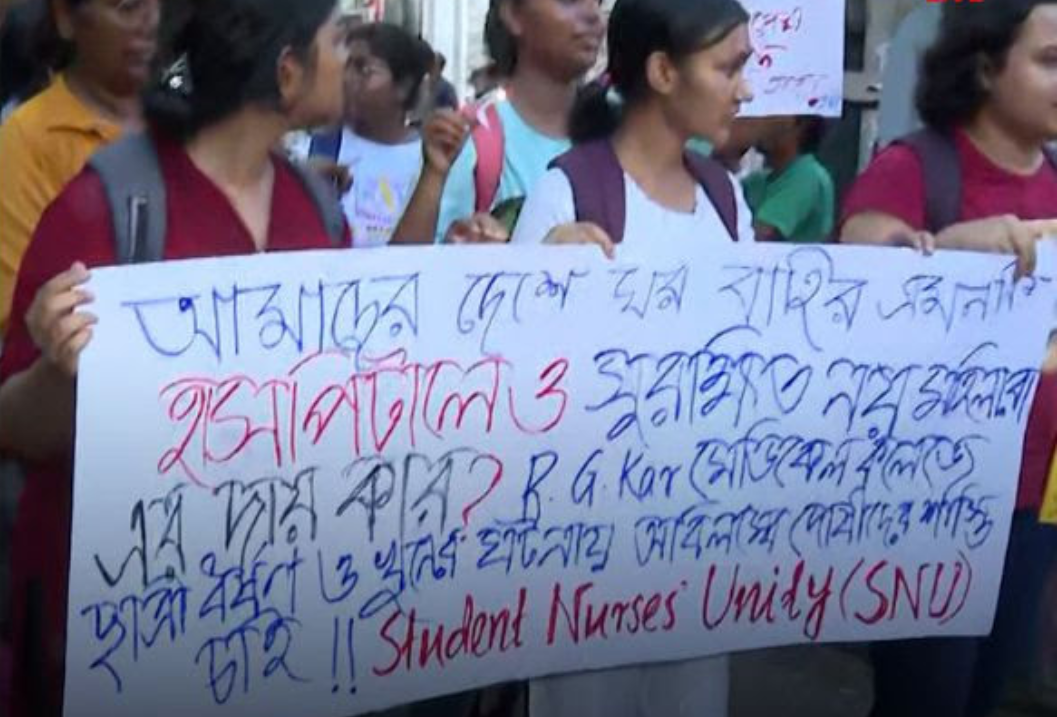 আমাদের দেশে ঘর বাহির এমনকি
হাসপিটালেও সুরক্ষিত নয় মহিলারা
এর দায় কার? R. G. Kar মেডিকেল কলেজে
ছাত্রী ধর্ষণ ও খুনের ঘটনায় অবিলম্বে দোষীদের শাস্তি
চাই !! Student Nurses' Unity (SNU)